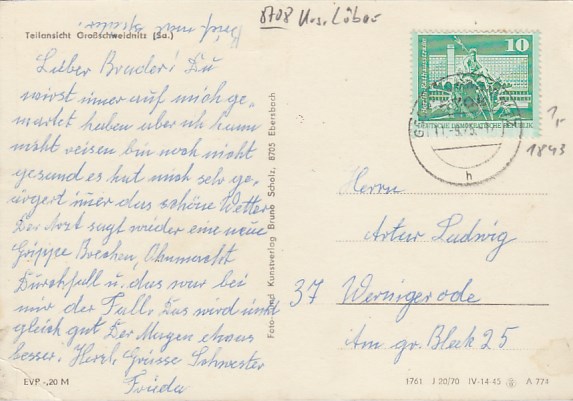 Brief mit später.
8708 Krs. Löbau
Teilansicht Großschweidnitz (Sa.)
Lieber Bruder! Du
wirst imer auf mich ge-
wartet haben aber ich kann
nicht reisen bin noch nicht
gesund es hat mich sehr ge-
ärgert imer das schöne Wetter
Der Arzt sagt wieder eine neue
Grippe Brechen, Ohnmacht
Durchfall u. das war bei
mir der Fall. Das wird
gleich gut Der Magen etwas
besser. Herzl. Grüsse Schwester
Frieda
EVP -,20 M
Foto- und Kunstverlag Bruno Scholz, 8705 Ebersbach
10
DEUTSCHE DEMOKRATISCHE REPUBLIK
h
1,-
1843
Herrn
Artur Ludwig
37 Wernigerode
Am gr. Bleek 25
1761 J 20/70 IV-14-45 A 774